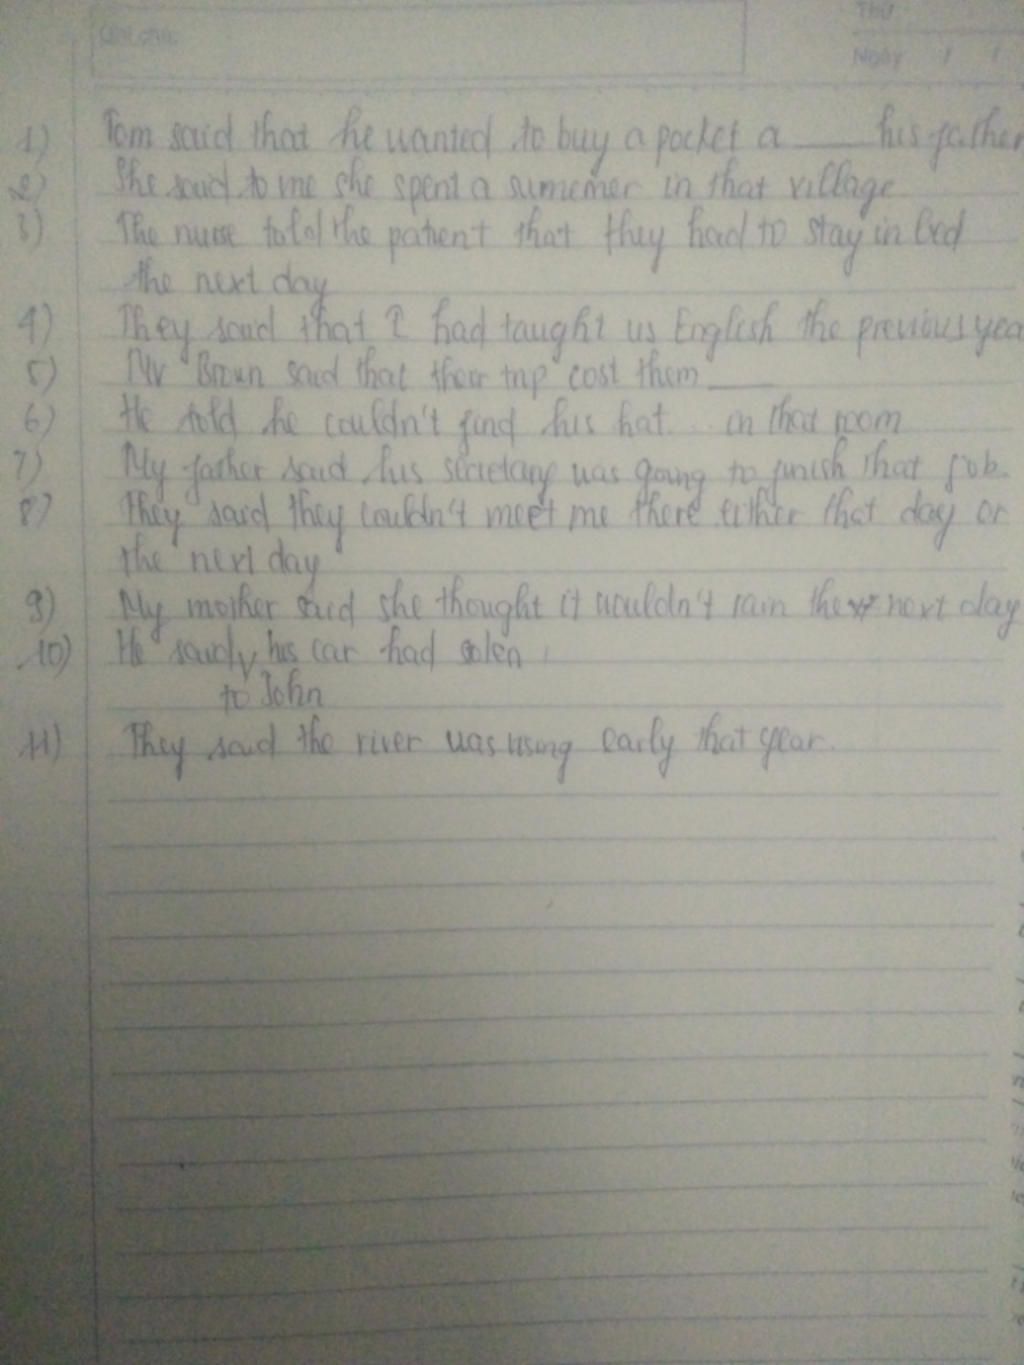 Thứ
Ngày / /
1) Tom said that he wanted to buy a pocket a ____ his father
2) She said to me she spent a sumemer in that village
3) The nurse told the patient that they had to stay in bed
the next day
4) They said that I had taught us English the previous yea
5) Mr Brown said that their trip cost them ____
6) He told he couldn't find his hat in that room
7) My father said his secretary was going to finish that job.
8) They said they couldn't meet me there either that day or
the next day
9) My mother said she thought it wouldn't rain the next day
10) He said his car had solen
to John
11) They said the river was rising early that year.